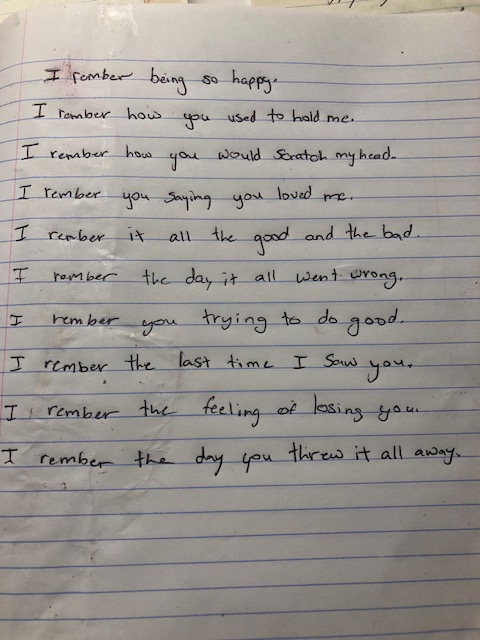 I rember being so happy.
I rember how you used to hold me.
I rember how you would scratch my head.
I rember you saying you loved me.
I rember it all the good and the bad.
I rember the day it all went wrong.
I rember you trying to do good.
I rember the last time I saw you.
I rember the feeling of losing you.
I rember the day you threw it all away.